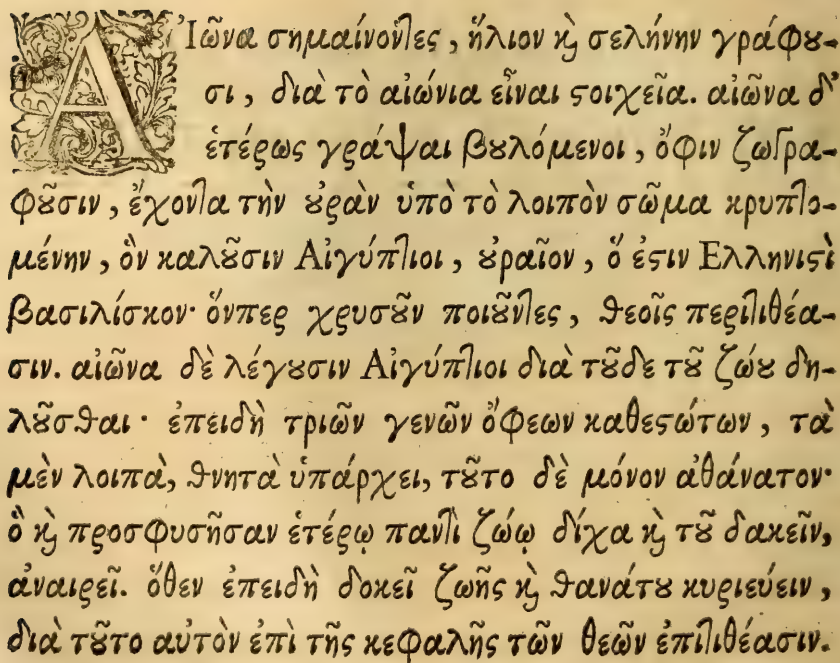 ΑἸῶνα σημαίνοντες, ἥλιον ϗ̀ σελήνην γράφȣ-
σι, διὰ τὸ αἰώνια εἶναι ϛοιχεῖα. αἰῶνα δ᾽
ἑτέρως γράψαι βȣλόμενοι, ὄφιν ζωγρα-
φȣ͂σιν, ἔχοντα τὴν ȣ̓ρὰν ὑπὸ τὸ λοιπὸν σῶμα κρυπτο-
μένην, ὃν καλȣ͂σιν Αἰγύπτιοι, ȣ̓ραῖον, ὅ ἐϛιν Ελληνιϛὶ
βασιλίσκον· ὅνπερ χρυσȣ͂ν ποιȣ͂ντες, θεοῖς περιτιθέα-
σιν. αἰῶνα δὲ λέγȣσιν Αἰγύπτιοι διὰ τȣ͂δε τȣ͂ ζώȣ δη-
λȣ͂σθαι· ἐπειδὴ τριῶν γενῶν ὄφεων καθεϛώτων, τὰ
μὲν λοιπὰ, θνητὰ ὑπάρχει, τȣ͂το δὲ μόνον ἀθάνατον·
ὃ ϗ̀ προσφυσῆσαν ἑτέρῳ παντὶ ζώῳ δίχα ϗ̀ τȣ͂ δακεῖν,
ἀναιρεῖ. ὅθεν ἐπειδὴ δοκεῖ ζωῆς ϗ̀ θανάτȣ κυριεύειν,
διὰ τȣ͂το αὐτὸν ἐπὶ τῆς κεφαλῆς τῶν θεῶν ἐπιτιθέασιν.